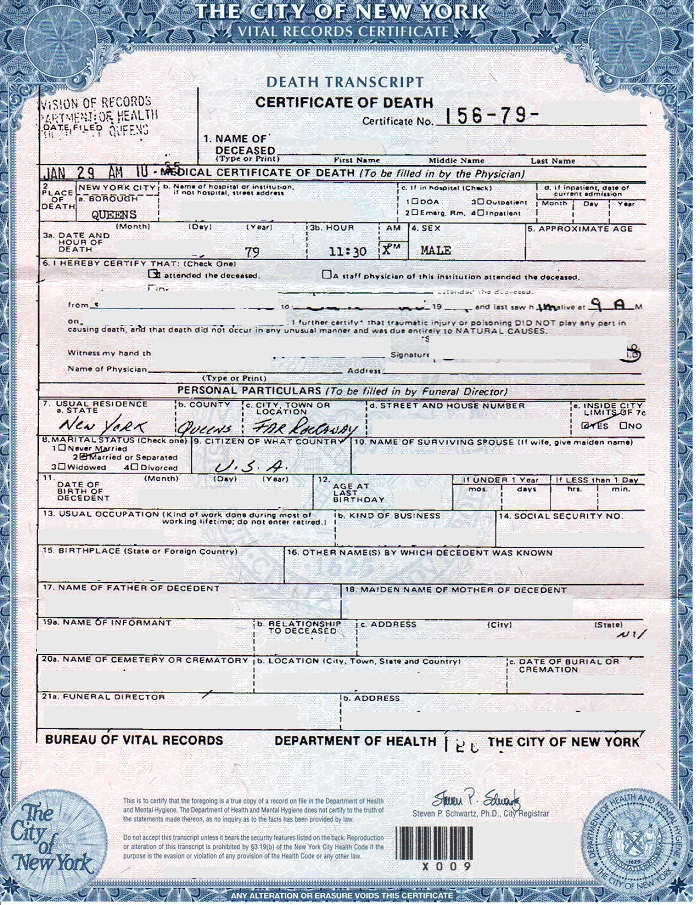 THE CITY OF NEW YORK
VITAL RECORDS CERTIFICATE
DEATH TRANSCRIPT
CERTIFICATE OF DEATH
VISION OF RECORDS
ARTMENT OF HEALTH
DATE FILED QUEENS
Certificate No. 156-79-
1. NAME OF DECEASED
(Type or Print) First Name Middle Name Last Name
JAN 29 AM 10
MEDICAL CERTIFICATE OF DEATH (To be filled in by the Physician)
2. PLACE OF DEATH
NEW YORK CITY
a. BOROUGH
QUEENS
b. Name of hospital or institution, if not hospital, street address
c. If in hospital (Check)
1 DOA 3 Outpatient
2 Emerg. Rm, 4 Inpatient
d. If inpatient, date of current admission
Month Day Year
3a. DATE AND HOUR OF DEATH
(Month) (Day) (Year)
79
3b. HOUR
11:30
AM
X PM
4. SEX
MALE
5. APPROXIMATE AGE
6. I HEREBY CERTIFY THAT: (Check One)
attended the deceased.
A staff physician of this institution attended the deceased.
attended the deceased.
from to 19 and last saw him alive at 9 A M
on I further certify* that traumatic injury or poisoning DID NOT play any part in
causing death, and that death did not occur in any unusual manner and was due entirely to NATURAL CAUSES.
Witness my hand th Signature
Name of Physician Address
(Type or Print)
PERSONAL PARTICULARS (To be filled in by Funeral Director)
7. USUAL RESIDENCE
a. STATE
New York
b. COUNTY
Queens
c. CITY, TOWN OR LOCATION
Far Rockaway
d. STREET AND HOUSE NUMBER
e. INSIDE CITY LIMITS OF 7c
YES NO
8. MARITAL STATUS (Check one)
1 Never Married
2 Married or Separated
3 Widowed 4 Divorced
9. CITIZEN OF WHAT COUNTRY
U.S.A.
10. NAME OF SURVIVING SPOUSE (If wife, give maiden name)
11. DATE OF BIRTH OF DECEDENT
(Month) (Day) (Year)
12. AGE AT LAST BIRTHDAY
If UNDER 1 Year
mos. days
If LESS than 1 Day
hrs. min.
13. USUAL OCCUPATION (Kind of work done during most of working lifetime; do not enter retired.)
b. KIND OF BUSINESS
14. SOCIAL SECURITY NO.
15. BIRTHPLACE (State or Foreign Country)
16. OTHER NAME(S) BY WHICH DECEDENT WAS KNOWN
17. NAME OF FATHER OF DECEDENT
18. MAIDEN NAME OF MOTHER OF DECEDENT
19a. NAME OF INFORMANT
b. RELATIONSHIP TO DECEASED
c. ADDRESS (City) (State)
NY
20a. NAME OF CEMETERY OR CREMATORY
b. LOCATION (City, Town, State and Country)
c. DATE OF BURIAL OR CREMATION
21a. FUNERAL DIRECTOR
b. ADDRESS
BUREAU OF VITAL RECORDS DEPARTMENT OF HEALTH THE CITY OF NEW YORK
This is to certify that the foregoing is a true copy of a record on file in the Department of Health
and Mental Hygiene. The Department of Health and Mental Hygiene does not certify to the truth of
the statements made thereon, as no inquiry as to the facts has been provided by law.
Do not accept this transcript unless it bears the security features listed on the back. Reproduction
or alteration of this transcript is prohibited by §3.19(b) of the New York City Health Code if the
purpose is the evasion or violation of any provision of the Health Code or any other law.
Steven P. Schwartz
Steven P. Schwartz, Ph.D., City Registrar
X009
The City of New York
DEPARTMENT OF HEALTH AND MENTAL HYGIENE
THE CITY OF NEW YORK
ANY ALTERATION OR ERASURE VOIDS THIS CERTIFICATE